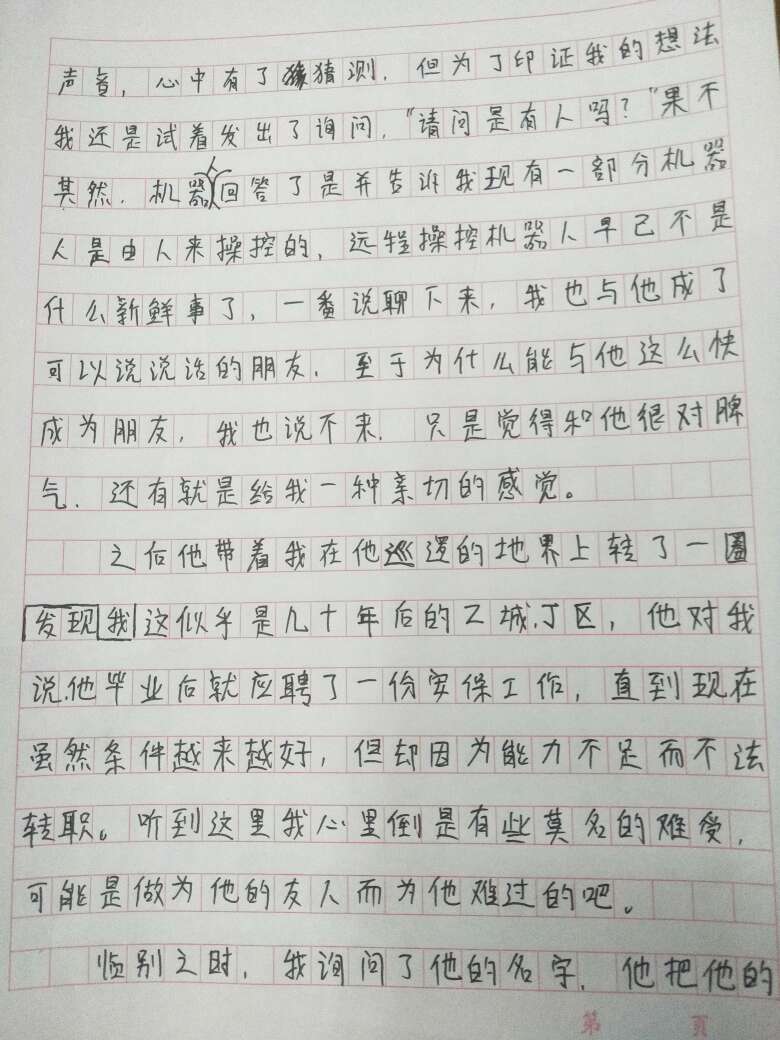 声音，心中有了猜测，但为了印证我的想法
我还是试着发出了询问，"请问是有人吗？"果不
其然，机器人回答了是并告诉我现有一部分机器
人是由人来操控的，远程操控机器人早已不是
什么新鲜事了，一番说聊下来，我也与他成了
可以说说话的朋友，至于为什么能与他这么快
成为朋友，我也说不来，只是觉得和他很对脾
气，还有就是给我一种亲切的感觉。
之后他带着我在他巡逻的地界上转了一圈
发现我这似乎是几十年后的Z城，J区，他对我
说他毕业后就应聘了一份安保工作，直到现在
虽然条件越来越好，但却因为能力不足而不法
转职。听到这里我心里倒是有些莫名的难受，
可能是做为他的友人而为他难过的吧。
临别之时，我询问了他的名字，他把他的
第 页